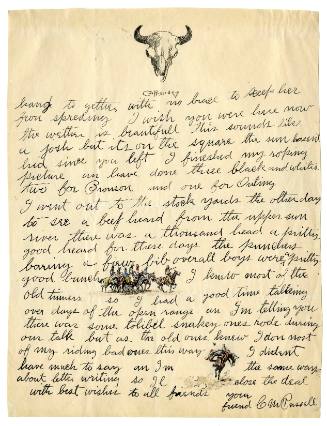 hang to gether with no brace to keep her
from spreding I wish you were here now
the wether is beautifull this sounds like
a josh but its on the square the sun has ben
but since you left I finished my roping
picture an have done three black and whites
two for Bronson and one for Outing
I went out to the stock yards the other day
to see a beef heard from the upper sun
river there was a thousand head a prittey
good heard for these days the punchers
baring a few bib overall boys were prittey
good bunch I knew most of the
old timers so I had a good time talking
over days of the open range an I'm telling you
there was some tolibel snakey ones rode during
our talk but as the old ones knew I don most
of my riding bad ones this way I didnt
have much to say an Im the same way
about letter writing so Il close the deal
with best wishes to all friends your
friend CM Russell